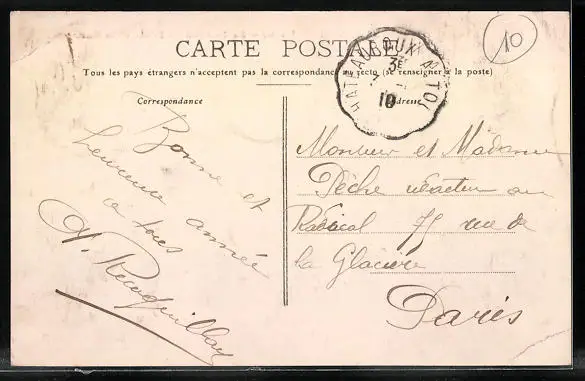 CARTE POSTALE
Tous les pays étrangers n'acceptent pas la correspondance au recto (se renseigner à la poste)
Correspondance
Adresse
10
10
Bonne et
heureuse année
à tous
Monsieur et Madame
Pêche rédacteur au
Radical 75 rue de
la Glacière
Paris